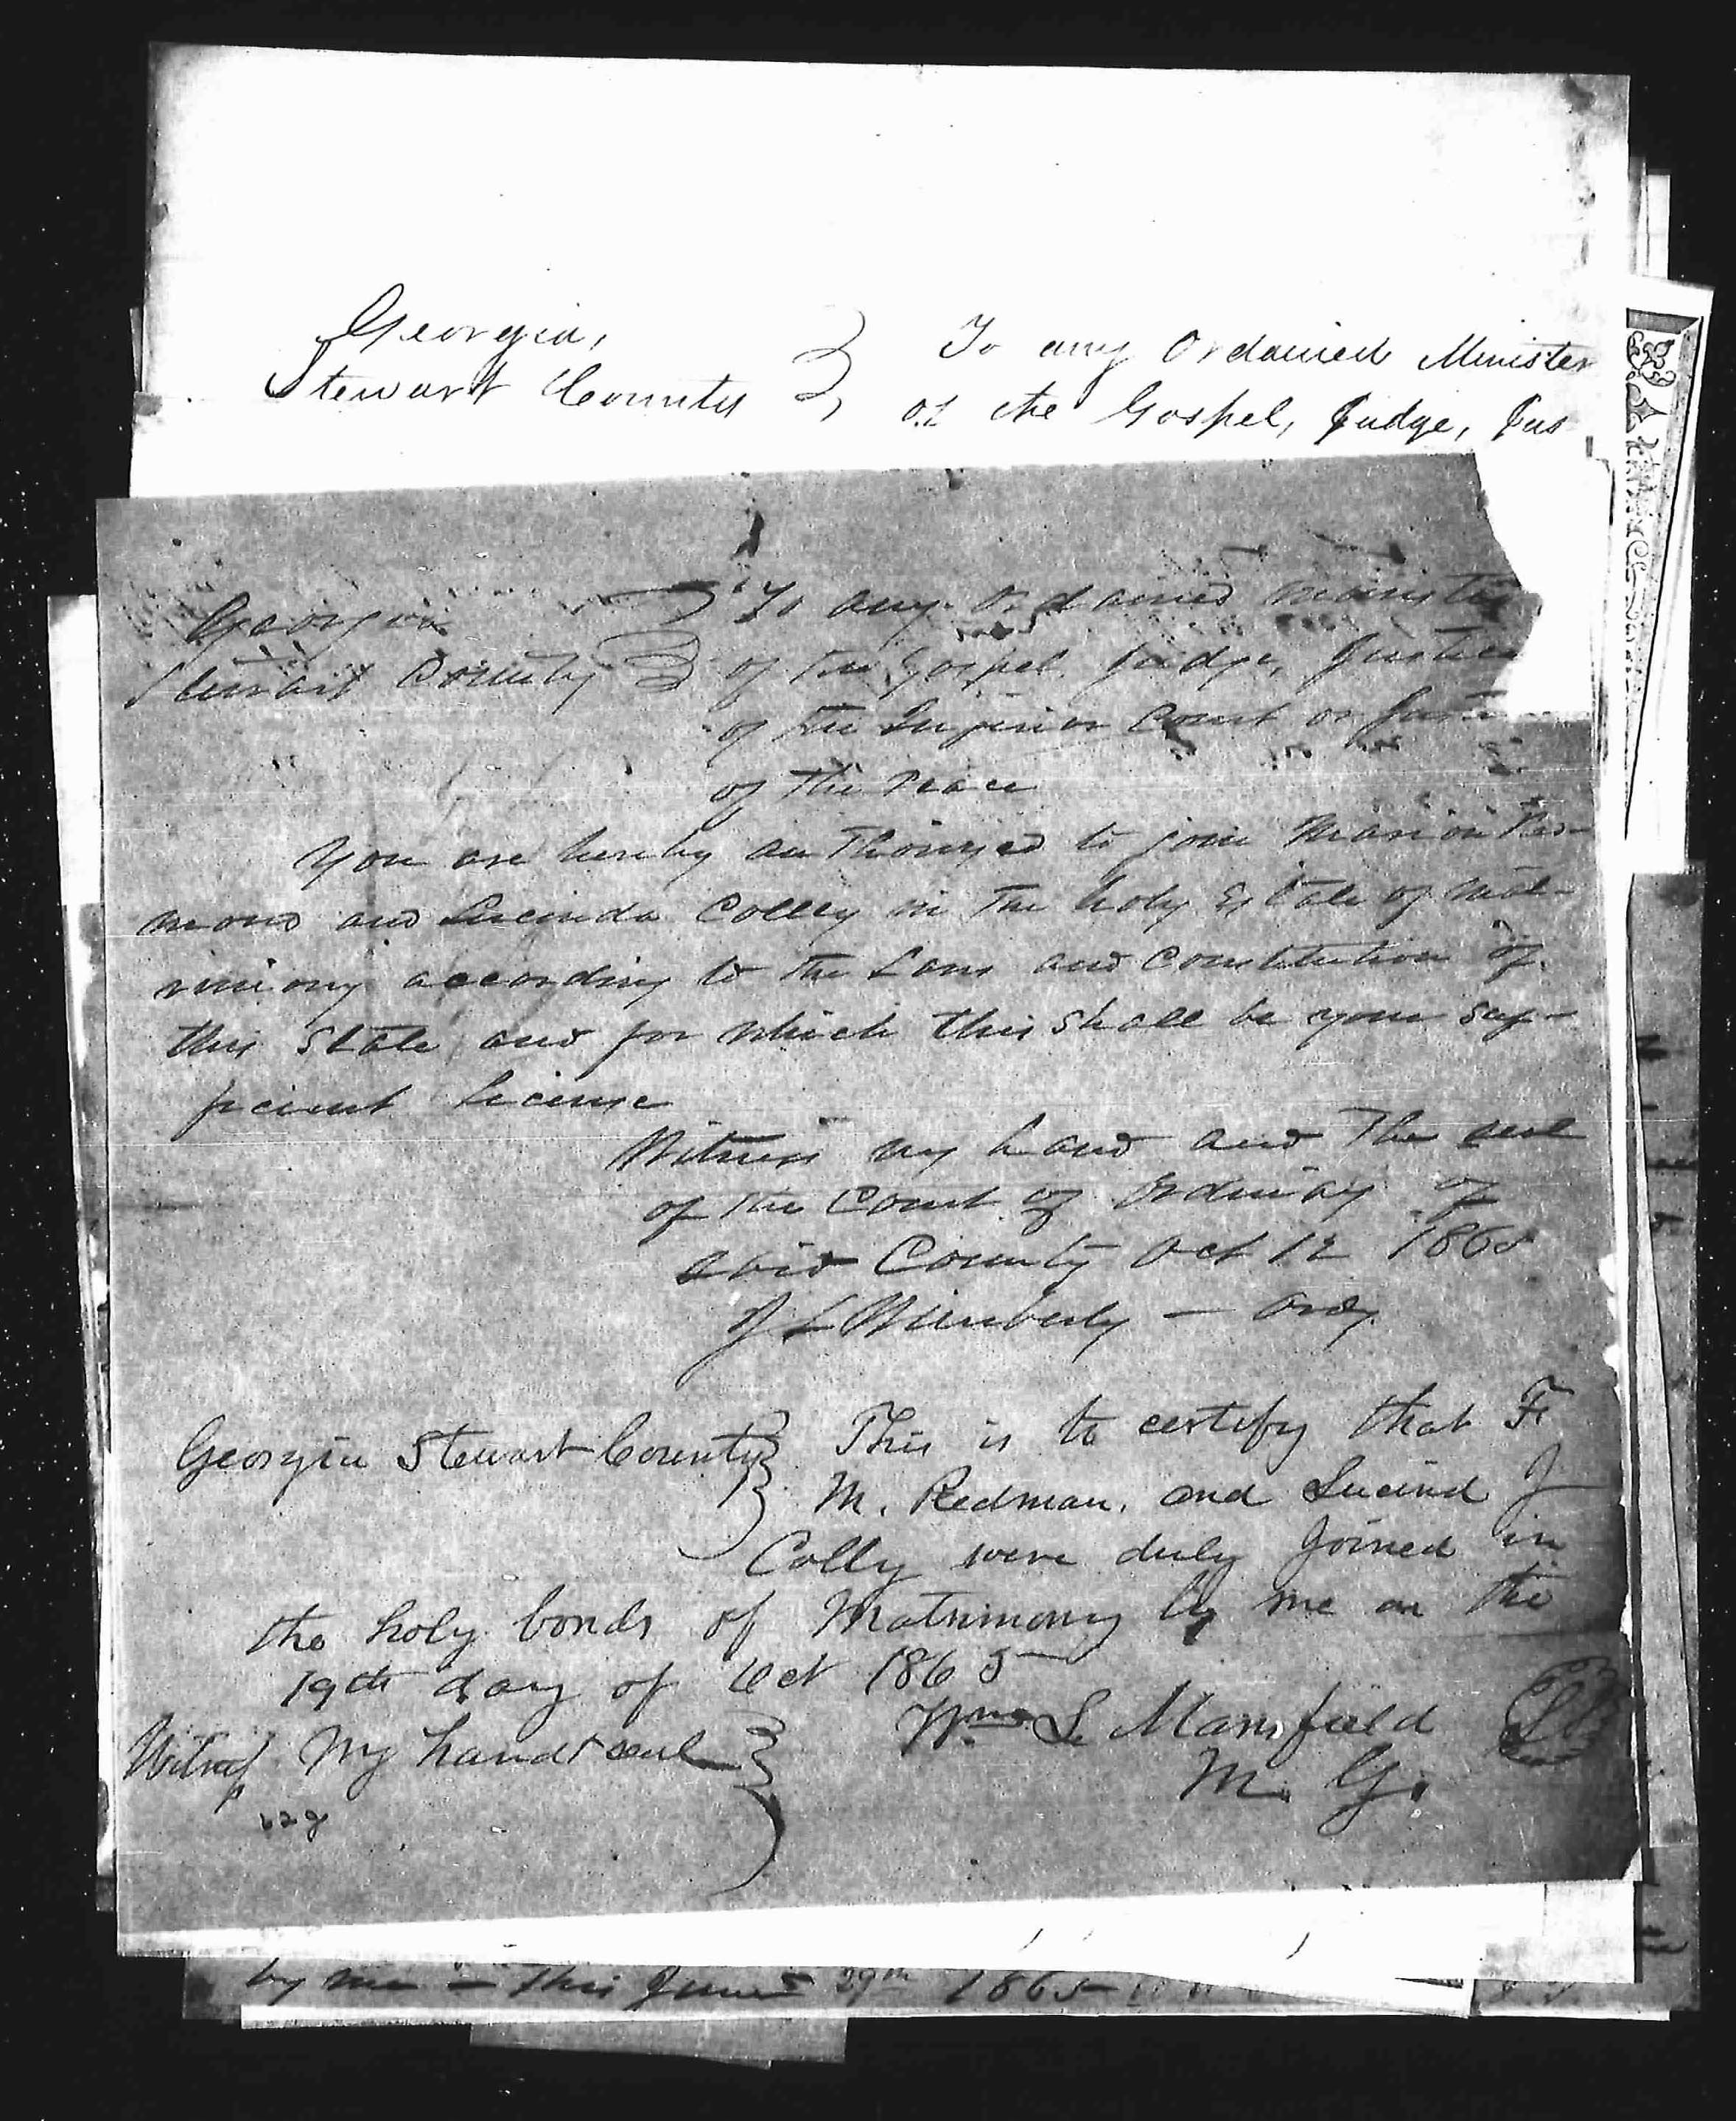 Georgia,
Stewart County } To any Ordained Minister
of the Gospel, Judge, Jus
Georgia } To any ordained minister
Stewart County } of the Gospel, Judge, Justice
of the Inferior Court or Justi
of the Peace
You are hereby authorized to join Marion Red-
mond and Lucinda Colley in the holy Estate of mat-
rimony according to the Laws and Constitution of
this State and for which this shall be your suf-
ficient License
Witness my hand and the seal
of the Court of Ordinary of
said County Oct 12 1865
J L Wimberly — Ordy.
Georgia Stewart County } This is to certify that F.
M. Redman, and Lucind J
Colly were duly Joined in
the holy bonds of Matrimony by me on the
19th day of Oct 1865
Witness My hand & seal } Wm. L. Mansfield LS
M. G.
by me — this June 29th 1865